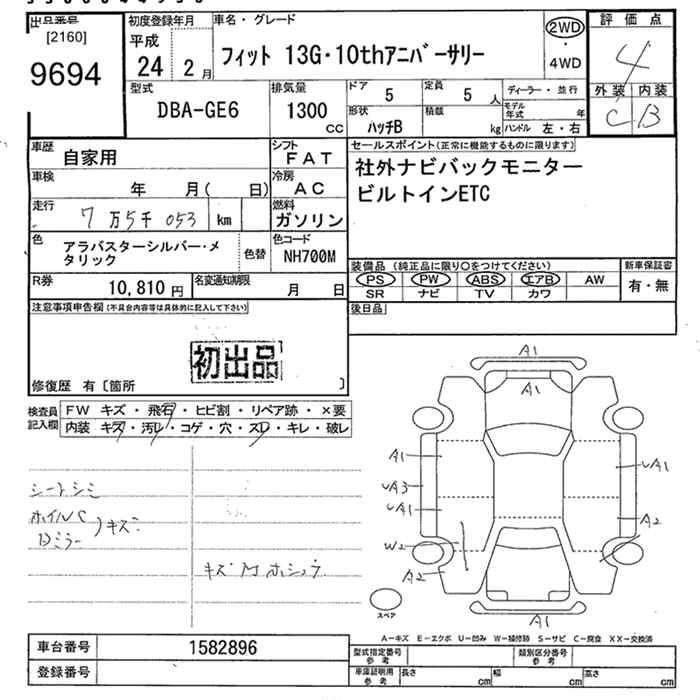 出品番号
[2160]
9694
初度登録年月
平成
24 2月
車名・グレード
フィット 13G・10thアニバーサリー
2WD
・
4WD
評価点
4
外装 内装
C B
型式
DBA-GE6
排気量
1300
CC
ドア 5
定員 5 人
形状
ハッチB
積載
kg
ディーラー・並行
モデル年式 年
ハンドル 左・右
車歴
自家用
シフト
FAT
車検
年 月( 日)
冷房
AC
走行
7万5千053 km
燃料
ガソリン
色
アラバスターシルバー・メ
タリック
色替
色コード
NH700M
R券
10,810円
名変通知期限
月 日
セールスポイント(正常に機能するものに限ります)
社外ナビバックモニター
ビルトインETC
装備品(純正品に限り○をつけてください)
PS PW ABS エアB AW
SR ナビ TV カワ
新車保証書
有・無
後日品
注意事項申告欄(不具合内容等は具体的に記入して下さい)
初出品
修復歴 有〔箇所 〕
検査員
記入欄
FW キズ・飛石・ヒビ割・リペア跡・×要
内装 キズ・汚レ・コゲ・穴・スレ・キレ・破レ
シートシミ
ホイルC
Dミラー
)キズ
キズ 凹 ホシュウ
A1
A1
A1
UA3
UA1
W2
A2
UA1
A2
A1
スペア
A−キズ E−エクボ U−凹み W−補修跡 S−サビ C−腐食 XX−交換済
車台番号 1582896
登録番号
型式指定番号
参考
類別区分番号
参考
車庫証明用
参考
長さ cm
幅 cm
高さ cm